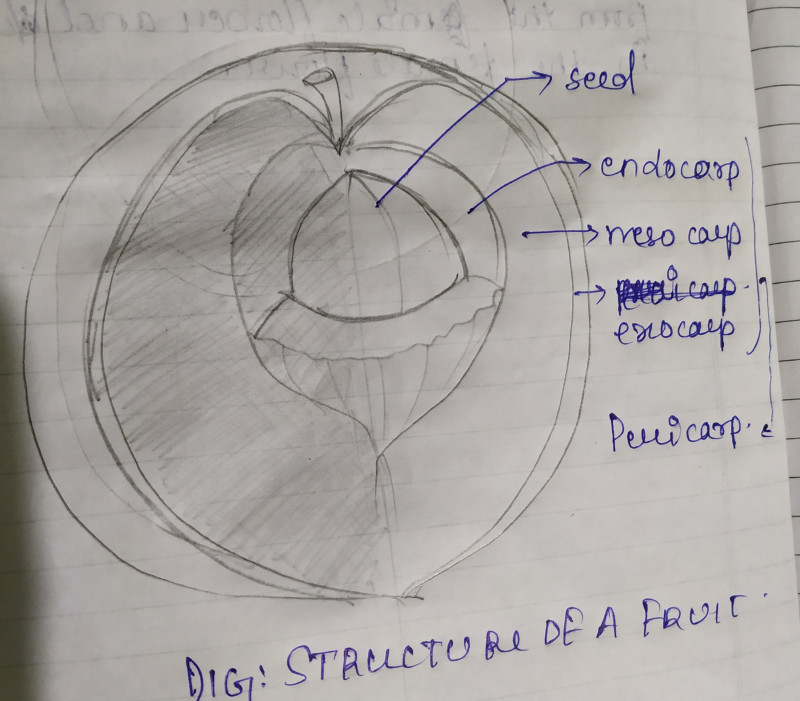 seed
endocarp
mesocarp
exocarp
Pericarp.
DIG: STRUCTURE OF A FRUIT.